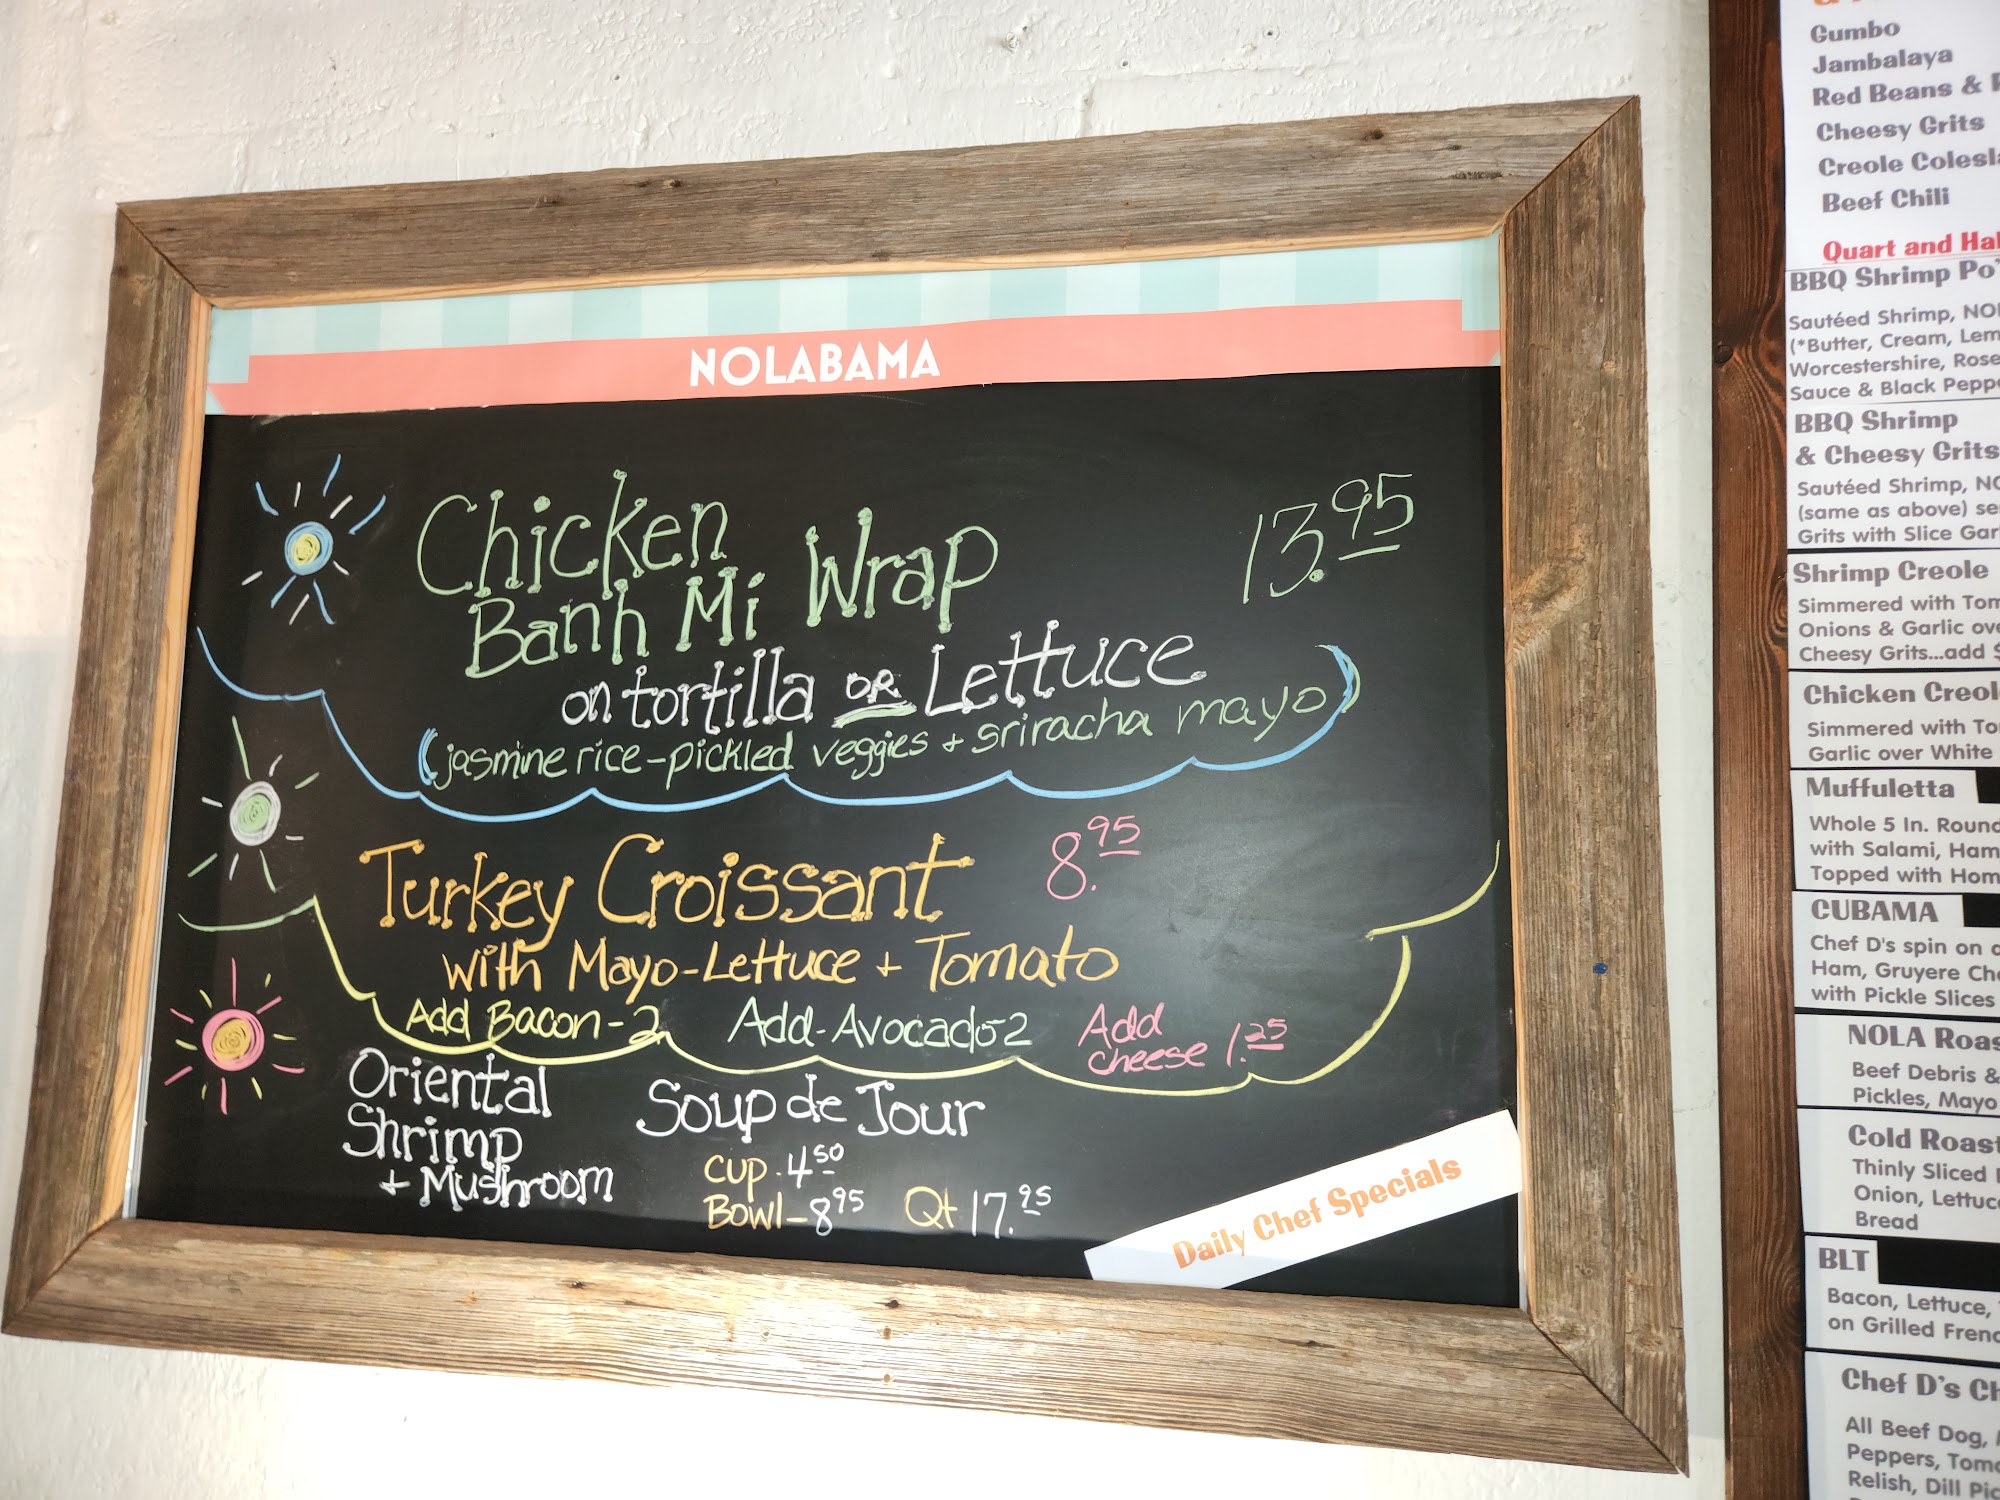 NOLABAMA
Chicken
Banh Mi Wrap
13.95
on tortilla OR Lettuce
(jasmine rice-pickled veggies + sriracha mayo)
Turkey Croissant 8.95
with Mayo-Lettuce + Tomato
Add Bacon-2 Add-Avocado-2 Add cheese 1.25
Oriental
Shrimp
+ Mushroom
Soup de Jour
Cup. 4.50
Bowl-8.95 Qt 17.95
Daily Chef Specials
Gumbo
Jambalaya
Red Beans &
Cheesy Grits
Creole
Beef Chili
Quart and
BBQ Shrimp
Sautéed Shrimp,
(*Butter, Cream,
Worcestershire,
Sauce & Black
BBQ Shrimp
& Cheesy Grits
Sautéed Shrimp,
(same as above)
Grits with Slice
Shrimp Creole
Simmered with
Onions & Garlic
Cheesy Grits...add
Chicken
Simmered with
Garlic over White
Muffuletta
Whole 5 In. Round
with Salami, Ham
Topped with
CUBAMA
Chef D's spin on
Ham, Gruyere
with Pickle Slices
NOLA
Beef Debris &
Pickles, Mayo
Cold
Thinly Sliced
Onion,
Bread
BLT
Bacon, Lettuce,
on Grilled
Chef D's
All Beef Dog,
Peppers,
Relish, Dill